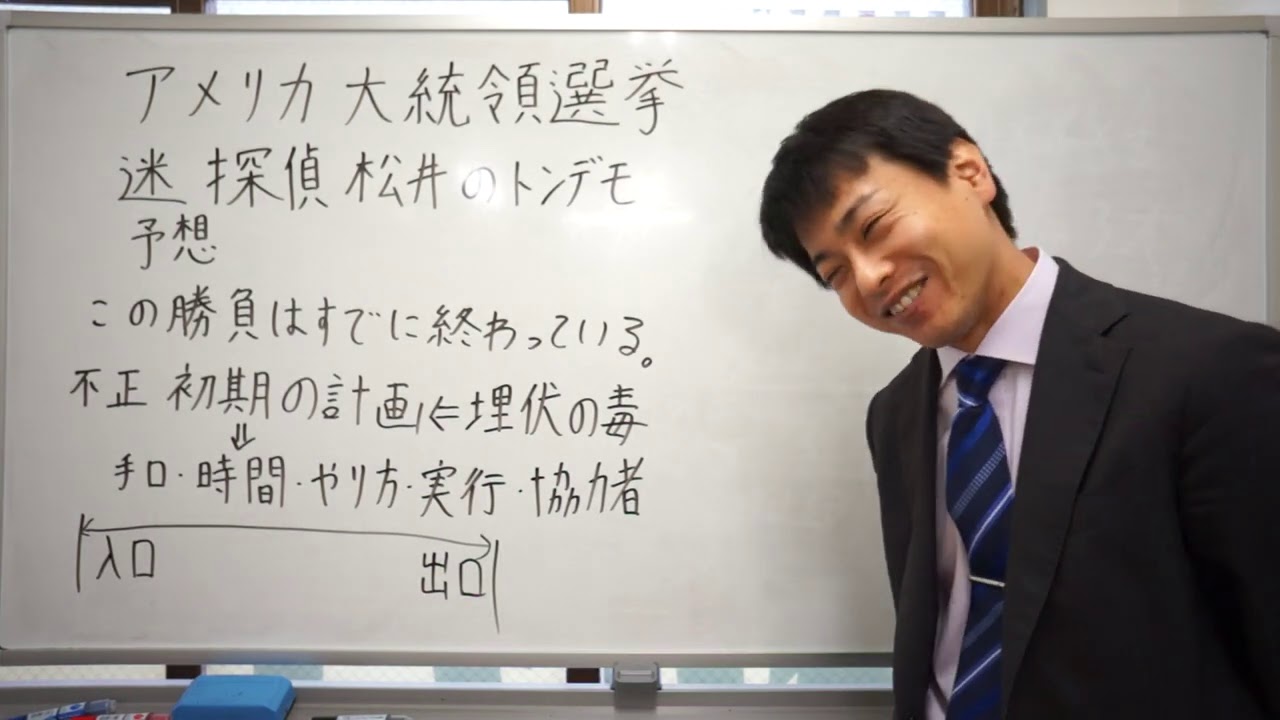 アメリカ大統領選挙
迷探偵松井のトンデモ
予想
この勝負はすでに終わっている。
不正 初期の計画⇐埋伏の毒
⇓
手口・時間・やり方・実行・協力者
入口 出口